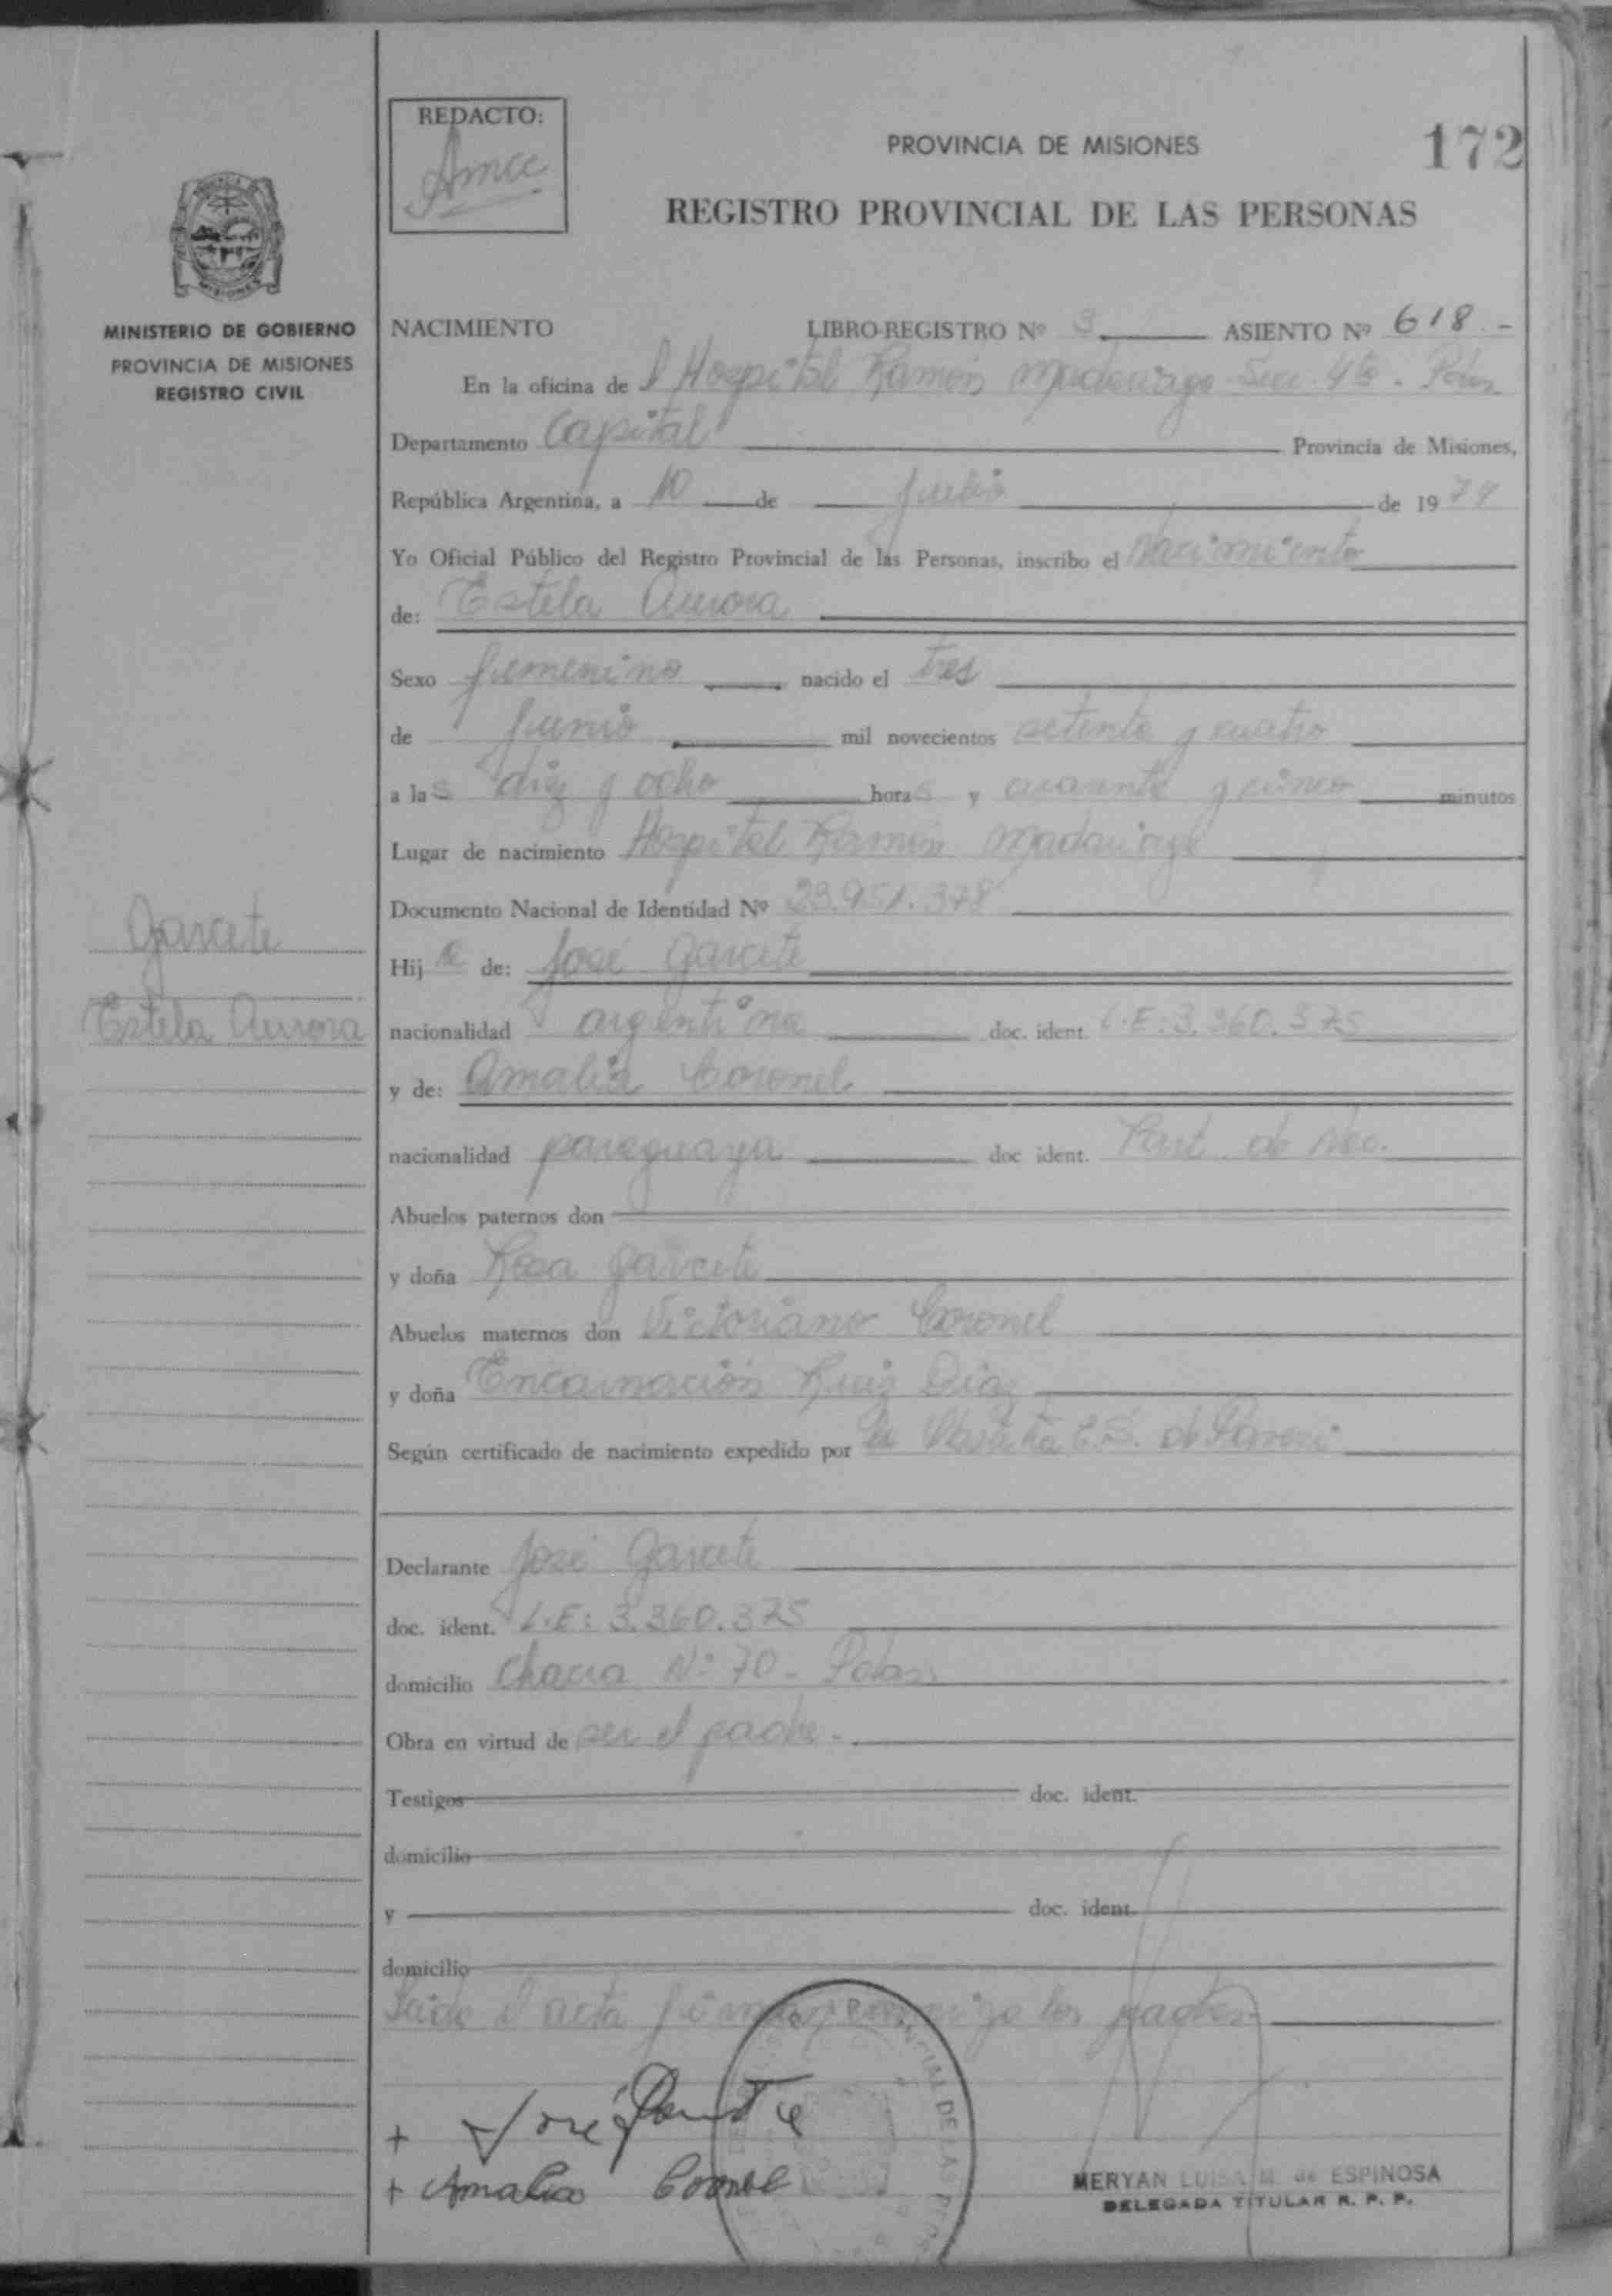 REDACTO:
PROVINCIA DE MISIONES
172
REGISTRO PROVINCIAL DE LAS PERSONAS
MINISTERIO DE GOBIERNO
PROVINCIA DE MISIONES
REGISTRO CIVIL
NACIMIENTO LIBRO-REGISTRO Nº 3 ASIENTO Nº 618.-
En la oficina de l Hospital Ramón Madariaga Secc. 4ta. Pdas
Departamento Capital Provincia de Misiones,
República Argentina, a 10 de Junio de 1974
Yo Oficial Público del Registro Provincial de las Personas, inscribo el Nacimiento
de: Estela Aurora
Sexo femenino nacido el tres
de Junio mil novecientos setenta y cuatro
a las diez y ocho horas y cuarenta y cinco minutos
Lugar de nacimiento Hospital Ramón Madariaga
Documento Nacional de Identidad Nº 23.951.378
Garcete
Estela Aurora
Hija de: José Garcete
nacionalidad argentina doc. ident. L.E: 3.360.375
y de: Amalia Coronel
nacionalidad paraguaya doc ident. Part. de Nac.
Abuelos paternos don
y doña Rosa Garcete
Abuelos maternos don Victoriano Coronel
y doña Encarnación Ruiz Diaz
Según certificado de nacimiento expedido por la E.S. de
Declarante José Garcete
doc. ident. L.E: 3.360.375
domicilio Chacra Nº 70 - Pdas.
Obra en virtud de ser el padre.-
Testigos doc. ident.
domicilio
y doc. ident.
domicilio
Leida el acta firman conmigo los padres
+ José Garcete
+ Amalia Coronel
MERYAN LUISA M. de ESPINOSA
DELEGADA TITULAR R. P. P.